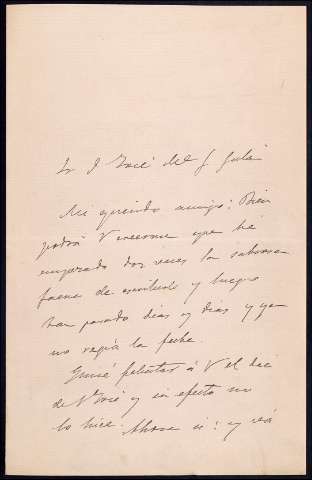 Sr D José del
Mi querido amigo: Bien
podrá V creerme que he
empezado dos veces la sabrosa
faena de escribirle y luego
han pasado dias y dias y ya
no regía la fecha.
felicitar á V el dia
de Sn José y en efecto no
lo hice. Ahora si: y